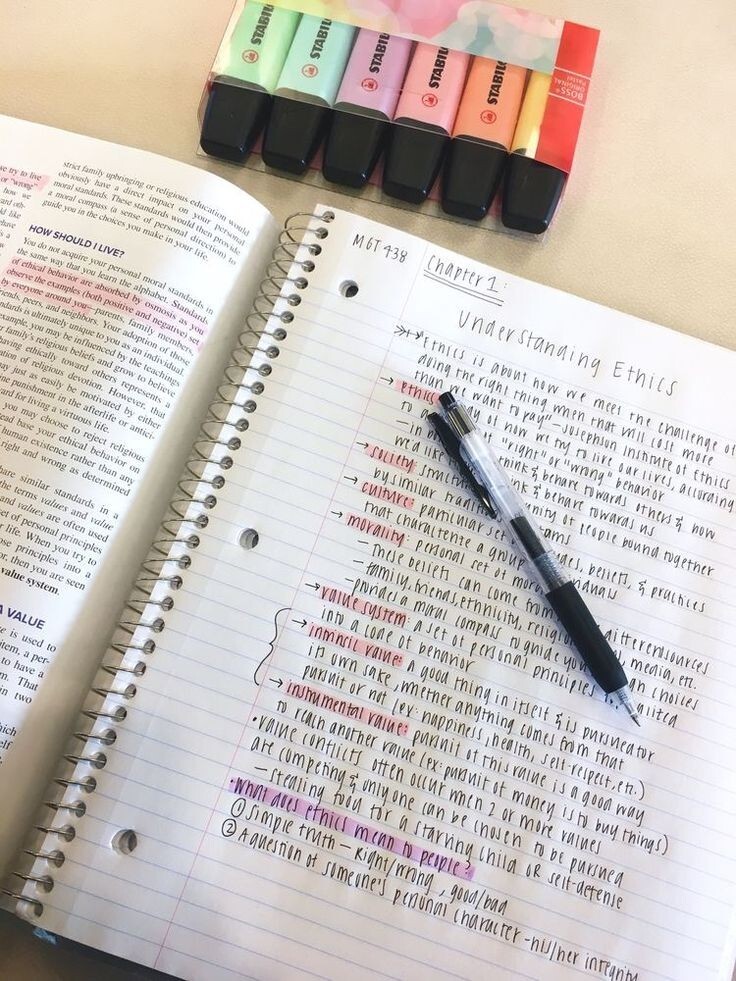 STABIL
STABIL
STABIL
STABIL
STABIL
BOSS®
ORIGINAL
Pastel
strict family upbringing or religious education would
obviously have a direct impact on your personal
moral standards. These standards would then provide
a moral compass (a sense of personal direction) to
guide you in the choices you make in your life.
HOW SHOULD I LIVE?
You do not acquire your personal moral standards in
the same way that you learn the alphabet. Standards
of ethical behavior are absorbed by osmosis as you
observe the examples (both positive and negative) set
by everyone around you: parents, family members,
friends, peers, and neighbors. Your adoption of those
is ultimately unique to you as an individual.
example, you may be influenced by the teachings
family's religious beliefs and grow to believe
having ethically toward others represents a
of religious devotion. However, that
may just as easily be motivated by either
punishment in the afterlife or
for living a virtuous life.
you may choose to reject religious
base your ethical behavior on
human existence rather than any
right and wrong as determined
share similar standards in a
the terms values and value
and values are often used
set of personal principles
life. When you try to
principles into a
then you are seen
value system.
A VALUE
is used to
item, a
to have a
That
in two
which
self
we try to live
or "wrong"
how we
MGT 438
Chapter 1:
Understanding Ethics
"Ethics is about how we meet the challenge of
doing the right thing when that will cost more
than we want to pay" - Josephson Institute of Ethics
→ ethics
of how we try to live our lives, according
to "right" or "wrong" behavior
think & behave towards others & how
we'd like think & behave towards us
→ society: of people bound together
by similar
→ culture: particular set beliefs, & practices
that characterize a group
→ morality: personal set of
- These beliefs can come from different sources
- family, friends, ethnicity, media, etc.
- provides a moral compass to guide choices
→ value system: a set of personal principles
into a code of behavior
→ intrinsic value: a good thing in itself & is pursued for
its own sake, whether anything comes from that
pursuit or not (ex: happiness, health, self-respect, etc.)
→ instrumental value: pursuit of this value is a good way
to reach another value (ex: pursuit of money is to buy things)
• value conflicts often occur when 2 or more values
are competing & only one can be chosen to be pursued
- stealing food for a starving child OR self-defense
• What does ethics mean to people?
① Simple truth - Right/wrong, good/bad
② A question of someone's personal character - his/her integrity